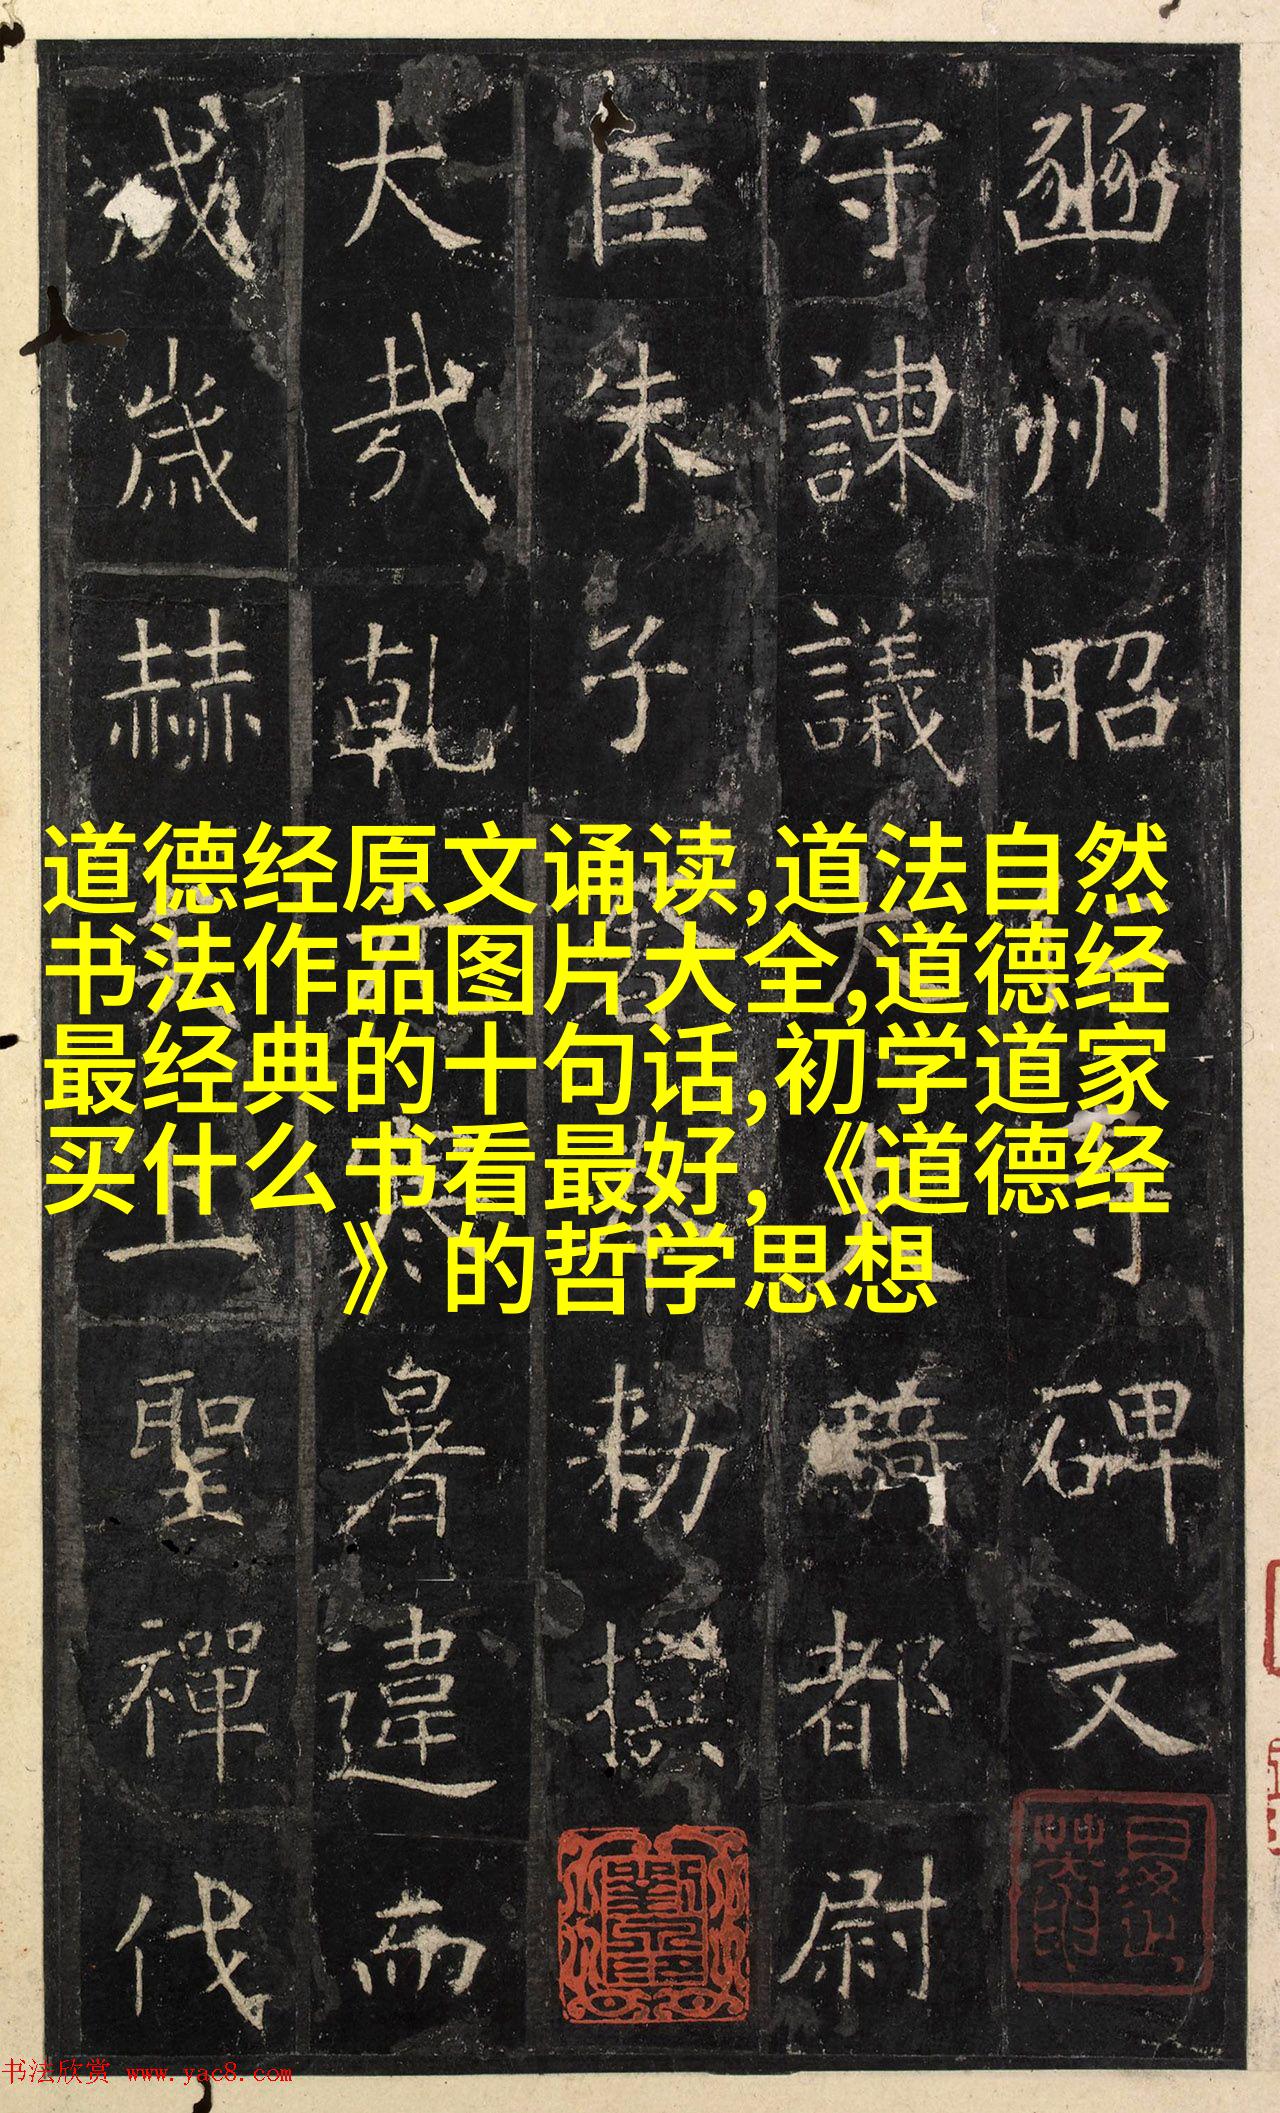 豳州昭寺碑文
守諫議大夫騎都尉
臣朱子奢奉勑撰
大哉乾元寒暑違而
成歲赫上聖禪代
道德经原文诵读,道法自然
书法作品图片大全,道德经
最经典的十句话,初学道家
买什么书看最好,《道德经
》的哲学思想
书法欣赏 www.yac8.com